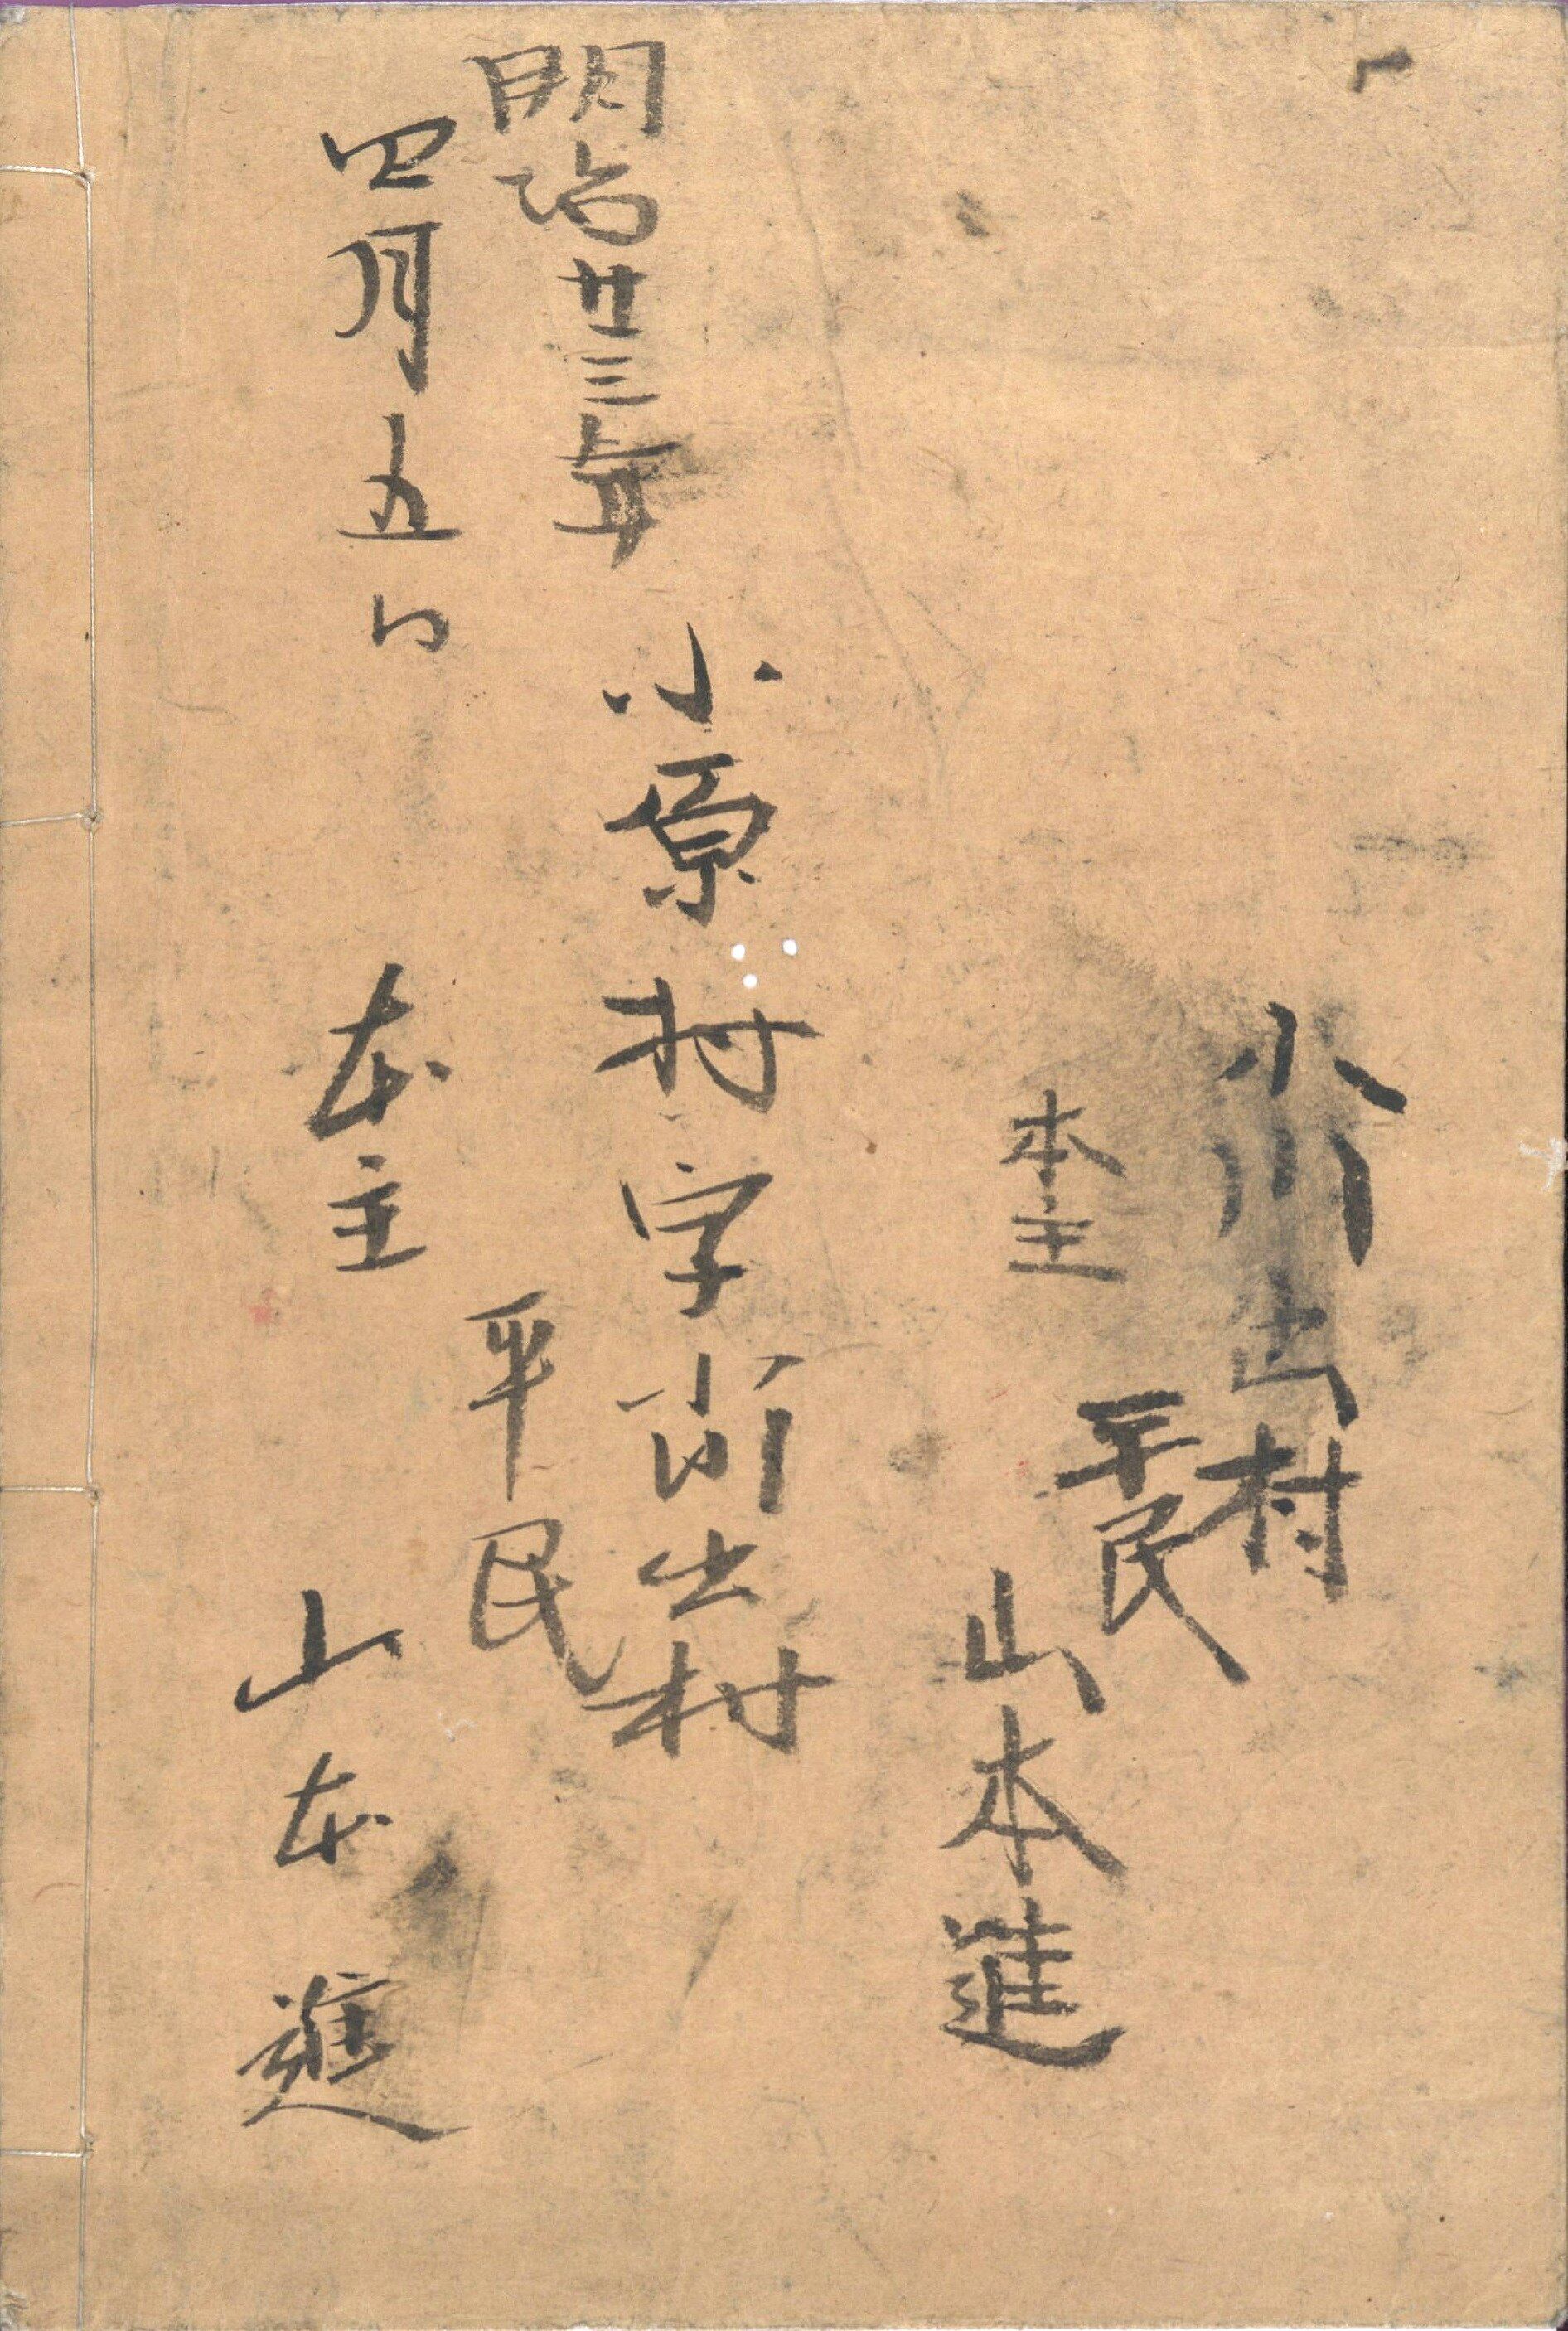 小川出村
平民
本主 山本進
明治廿三年 小原村字小川出村
平民
四月五日 本主 山本進